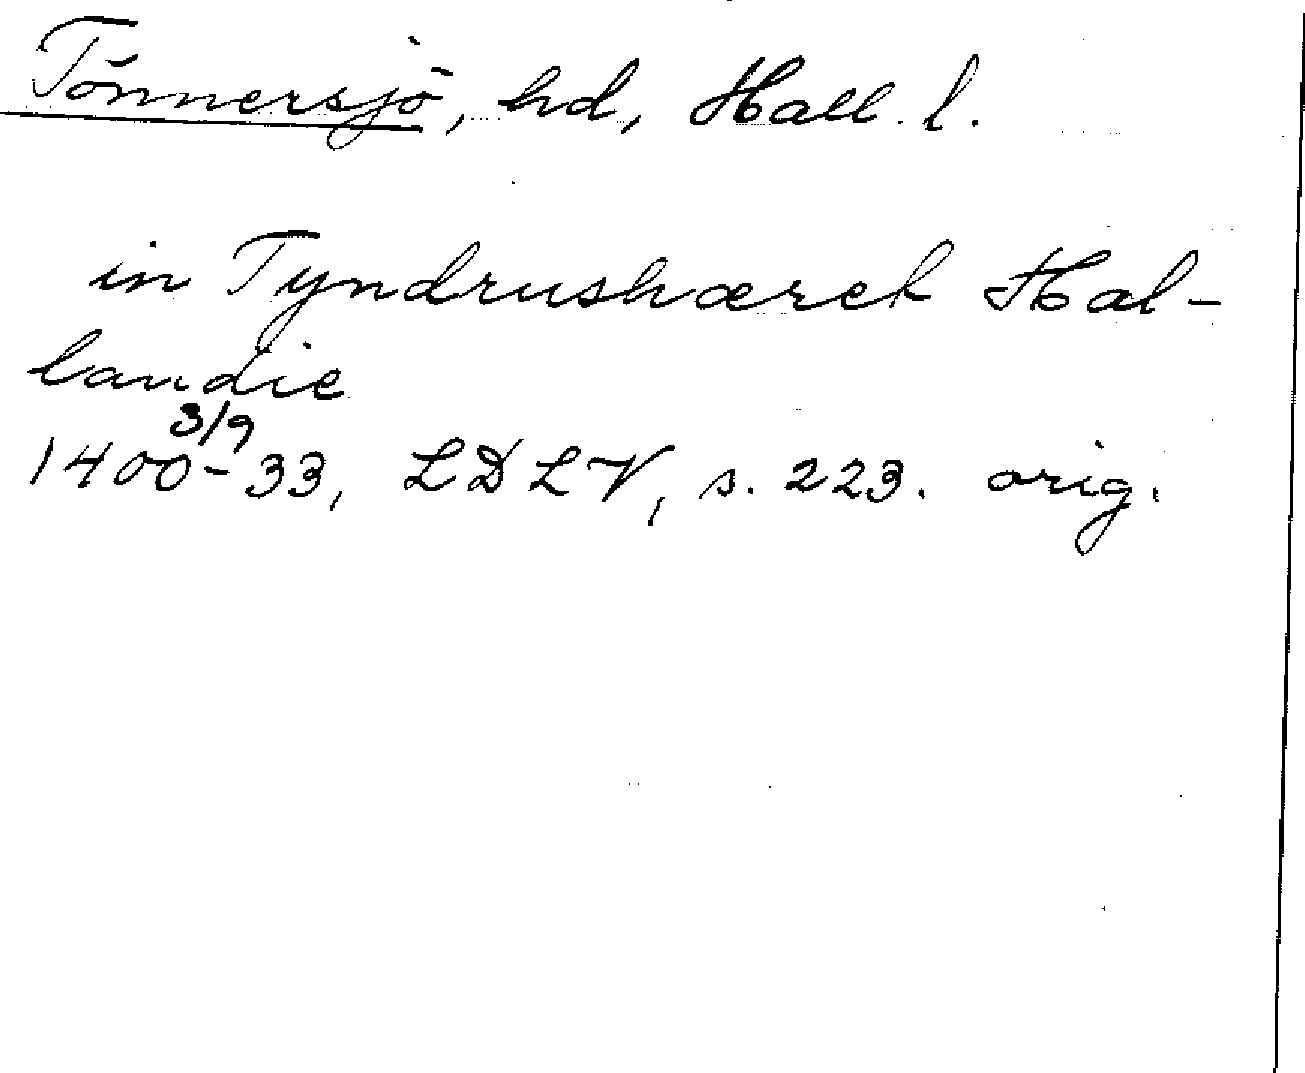 Tönnersjö, hd, Hall. l.
in Tyndrushæret Hal-
landie
3/9
1400-33, LDLV, s. 223. orig.